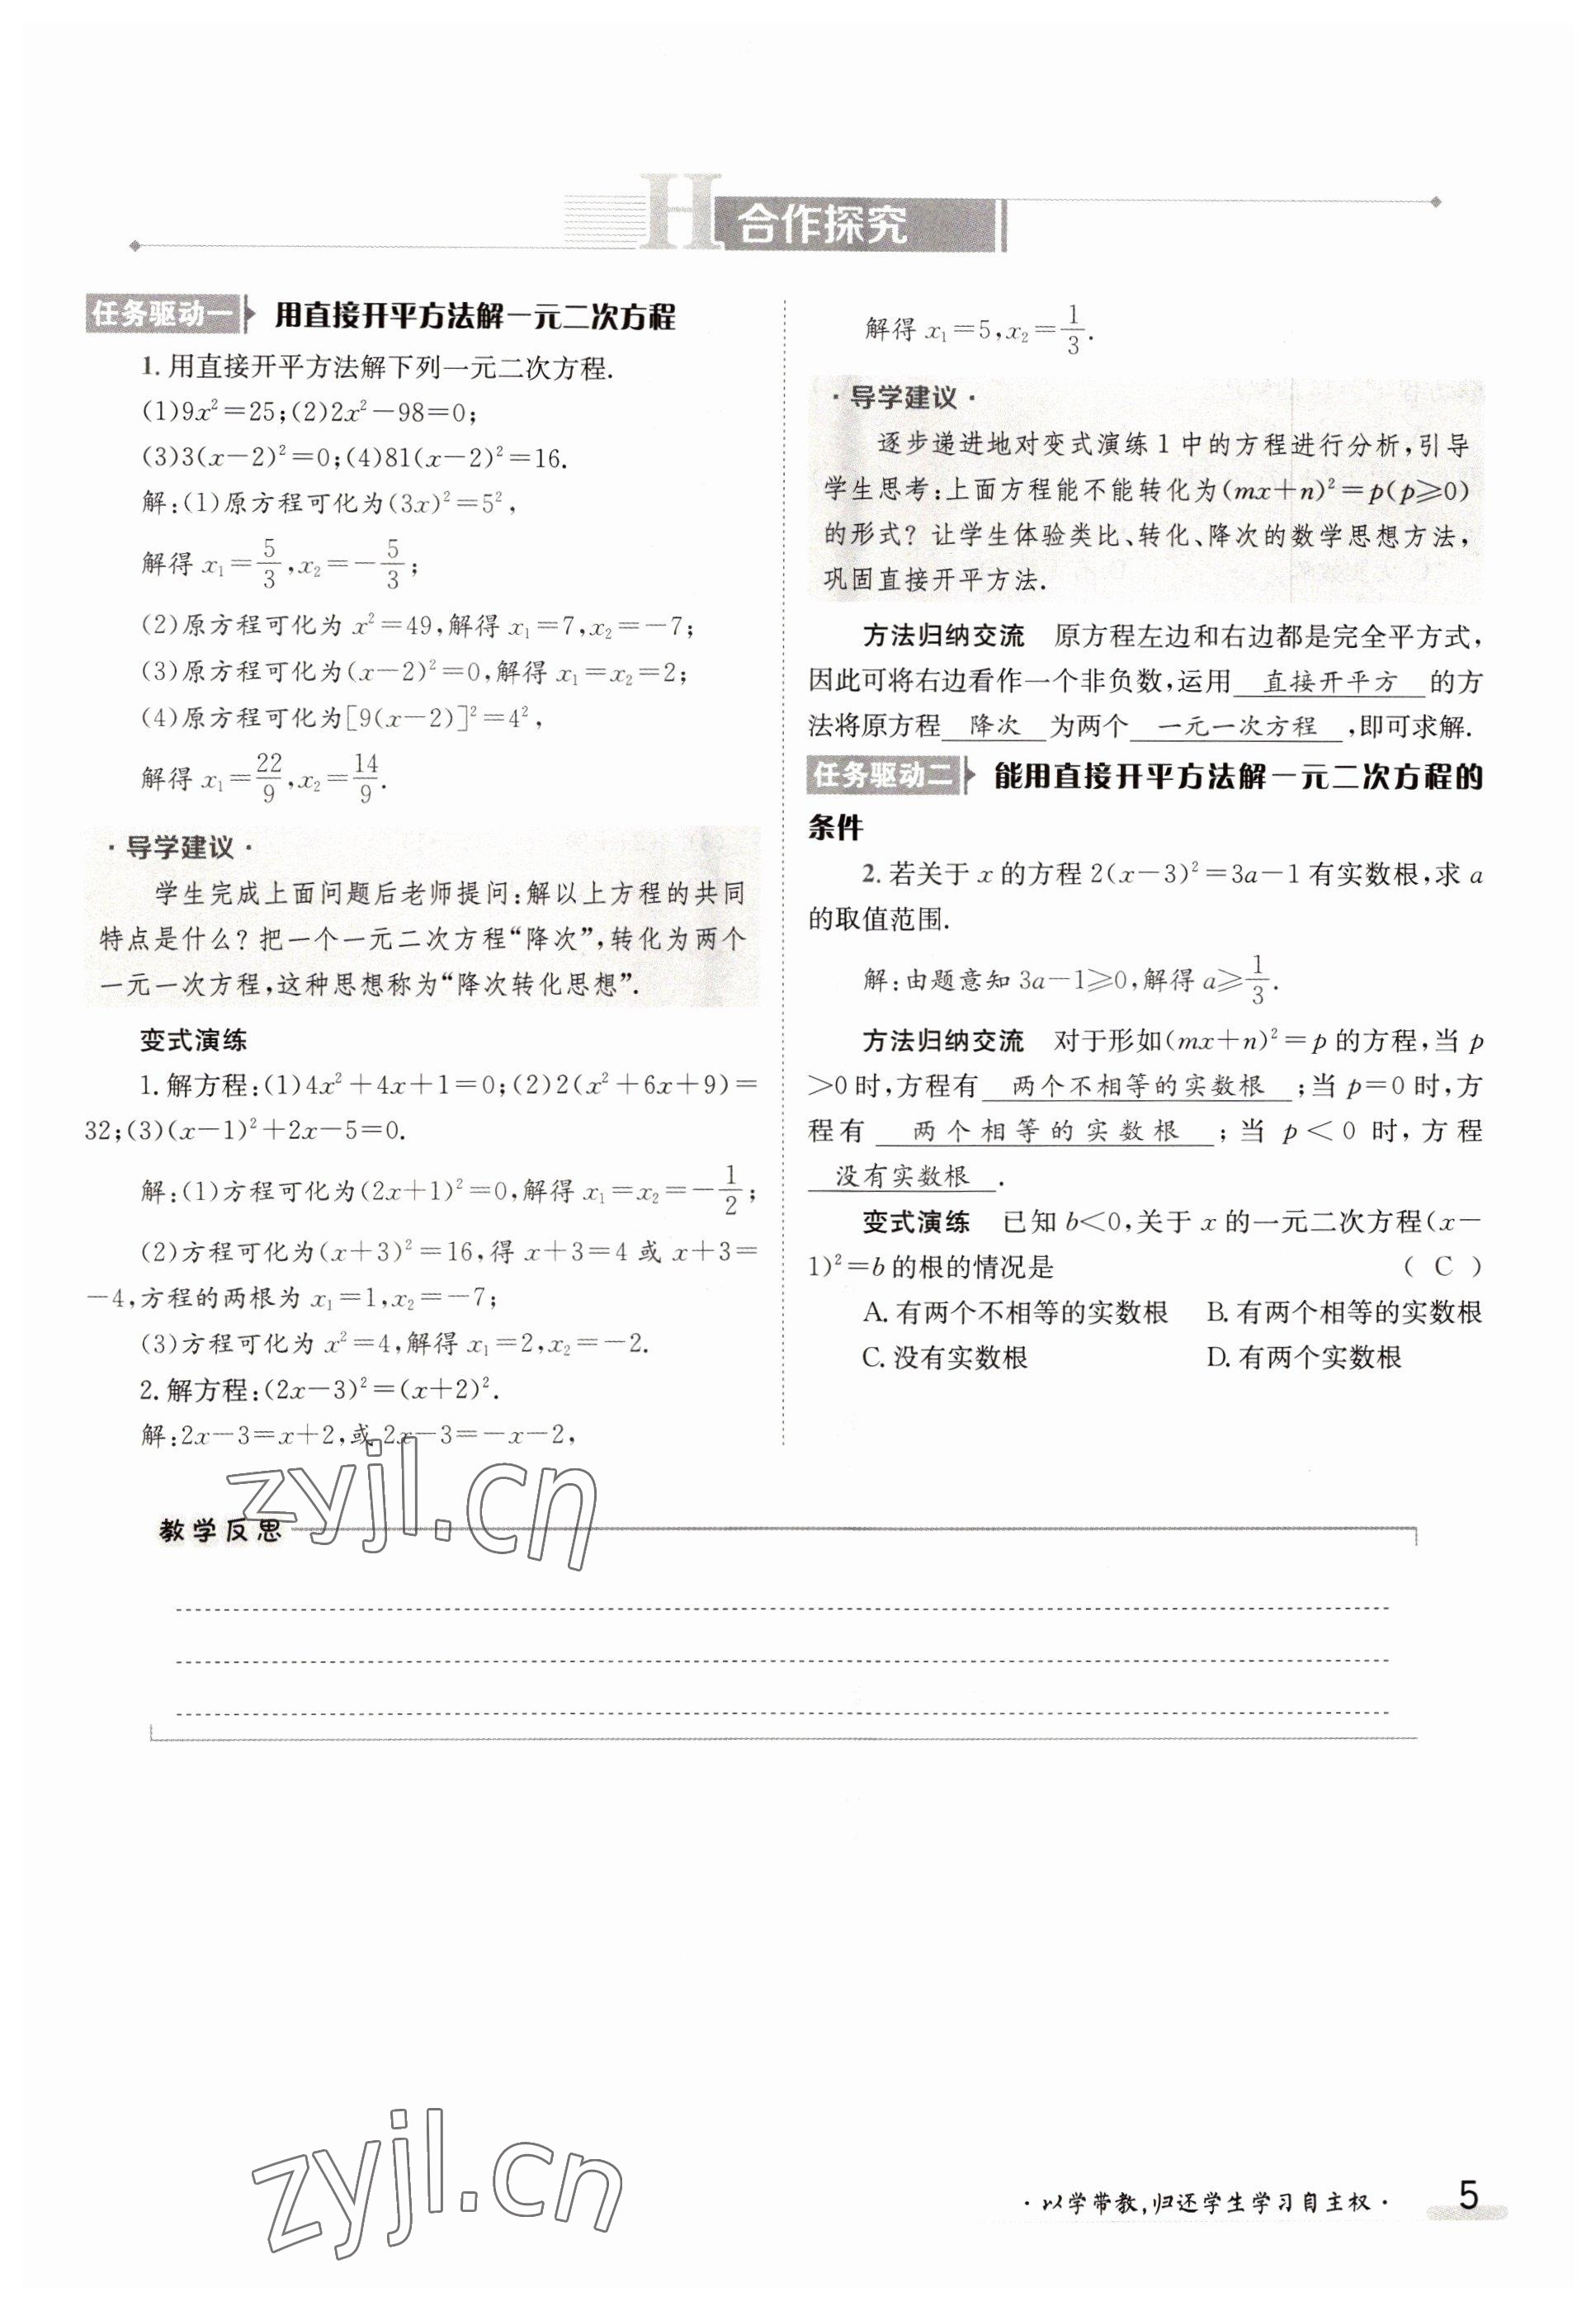 H 合作探究
任务驱动一 用直接开平方法解一元二次方程
1. 用直接开平方法解下列一元二次方程.
(1)9x²=25;(2)2x²-98=0;
(3)3(x-2)²=0;(4)81(x-2)²=16.
解:(1)原方程可化为(3x)²=5²,
解得 x₁=5/3,x₂=-5/3;
(2)原方程可化为 x²=49,解得 x₁=7,x₂=-7;
(3)原方程可化为(x-2)²=0,解得 x₁=x₂=2;
(4)原方程可化为[9(x-2)]²=4²,
解得 x₁=22/9,x₂=14/9.
·导学建议·
学生完成上面问题后老师提问:解以上方程的共同
特点是什么?把一个一元二次方程“降次”,转化为两个
一元一次方程,这种思想称为“降次转化思想”.
变式演练
1.解方程:(1)4x²+4x+1=0;(2)2(x²+6x+9)=
32;(3)(x-1)²+2x-5=0.
解:(1)方程可化为(2x+1)²=0,解得 x₁=x₂=-1/2;
(2)方程可化为(x+3)²=16,得 x+3=4 或 x+3=
-4,方程的两根为 x₁=1,x₂=-7;
(3)方程可化为 x²=4,解得 x₁=2,x₂=-2.
2.解方程:(2x-3)²=(x+2)².
解:2x-3=x+2,或 2x-3=-x-2,
解得 x₁=5,x₂=1/3.
·导学建议·
逐步递进地对变式演练 1 中的方程进行分析,引导
学生思考:上面方程能不能转化为(mx+n)²=p(p≥0)
的形式?让学生体验类比、转化、降次的数学思想方法,
巩固直接开平方法.
方法归纳交流 原方程左边和右边都是完全平方式,
因此可将右边看作一个非负数,运用 直接开平方 的方
法将原方程 降次 为两个 一元一次方程 ,即可求解.
任务驱动二 能用直接开平方法解一元二次方程的
条件
2. 若关于 x 的方程 2(x-3)²=3a-1 有实数根,求 a
的取值范围.
解:由题意知 3a-1≥0,解得 a≥1/3.
方法归纳交流 对于形如(mx+n)²=p 的方程,当 p
>0 时,方程有 两个不相等的实数根 ;当 p=0 时,方
程有 两个相等的实数根 ;当 p<0 时,方程
没有实数根 .
变式演练 已知 b<0,关于 x 的一元二次方程(x-
1)²=b 的根的情况是 ( C )
A. 有两个不相等的实数根 B. 有两个相等的实数根
C. 没有实数根 D. 有两个实数根
zyjl.cn
教学反思
zyjl.cn
·以学带教,归还学生学习自主权· 5